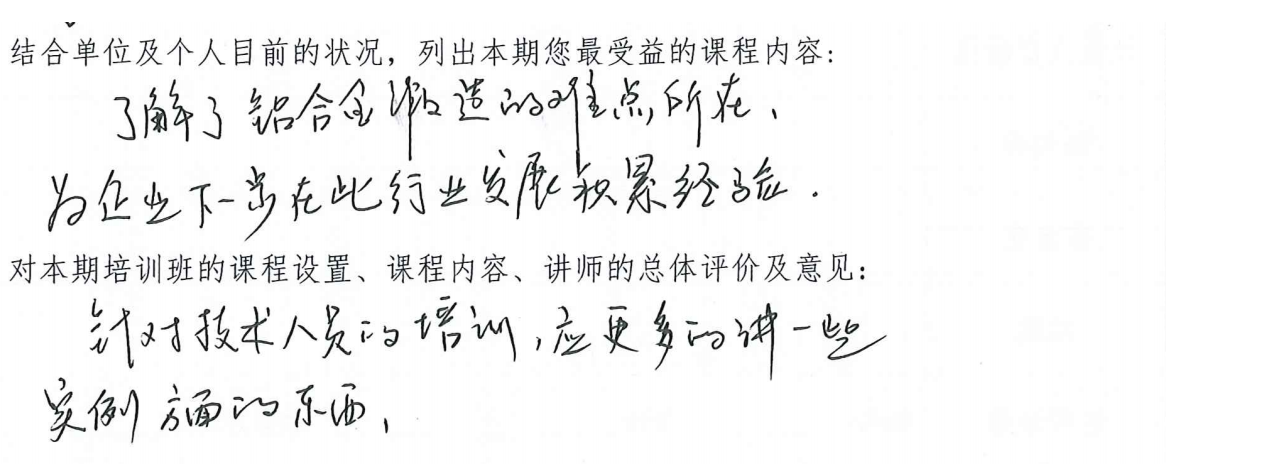 结合单位及个人目前的状况，列出本期您最受益的课程内容：
了解了铝合金锻造的难点所在、
为企业下一步在此行业发展积累经验．
对本期培训班的课程设置、课程内容、讲师的总体评价及意见：
针对技术人员的培训，应更多的讲一些
实例方面的东西，